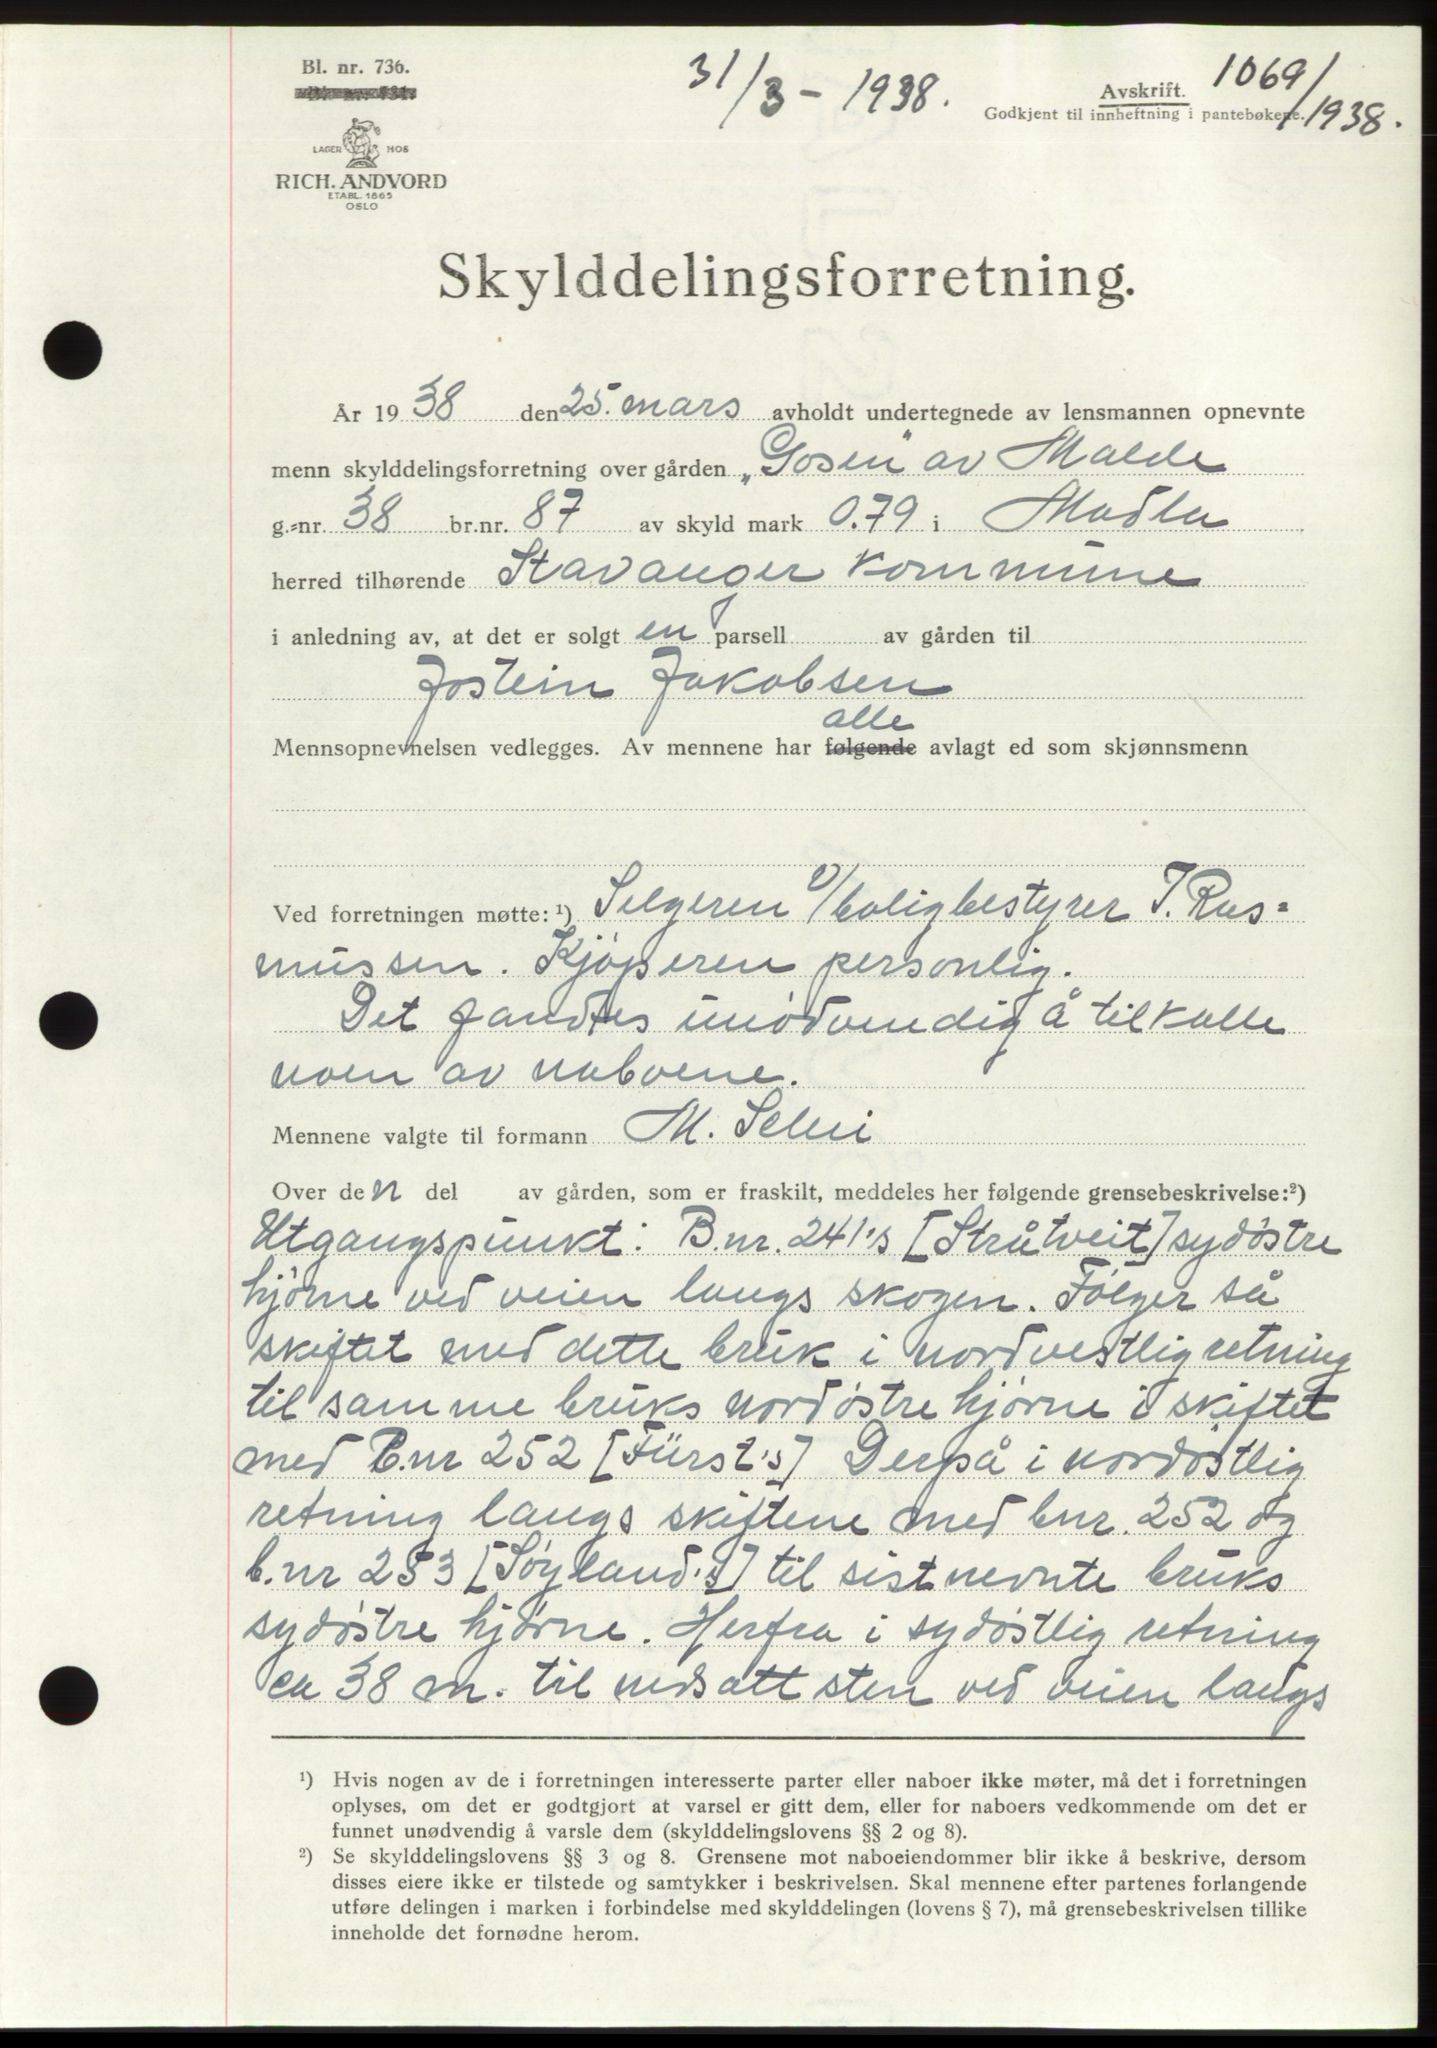 Bl. nr. 736.
31/3 - 1938.
Avskrift.
1069/1938.
Godkjent til innheftning i pantebøkene.
LAGER HOS
RICH. ANDVORD
ETABL. 1865
OSLO
Skylddelingsforretning.
År 1938 den 25. mars avholdt undertegnede av lensmannen opnevnte
menn skylddelingsforretning over gården „Gosen" av Malde
g.-nr. 38 br.nr. 87 av skyld mark 0.79 i Madla
herred tilhørende Stavanger kommune
i anledning av, at det er solgt en parsell av gården til
Jostein Jakobsen
alle
Mennsopnevnelsen vedlegges. Av mennene har følgende avlagt ed som skjønnsmenn
Ved forretningen møtte: ¹) Selgeren v/boligbestyrer T. Ras=
mussen. Kjøperen personlig.
Det fandtes unødvendig å tilkalle
noen av naboene.
Mennene valgte til formann M.
Over den del av gården, som er fraskilt, meddeles her følgende grensebeskrivelse: ²)
Utgangspunkt: B.nr. 241's [Stråtveit] sydøstre
hjørne ved veien langs skogen. Følger så
skiftet med dette bruk i nordvestlig retning
til samme bruks nordøstre hjørne i skiftet
med B.nr 252 [Fürst's] Derpå i nordøstlig
retning langs skiftene med bnr. 252 og
b.nr 253 [Søyland's] til sistnevnte bruks
sydøstre hjørne. Herfra i sydøstlig retning
ca 38 m. til nedsatt sten ved veien langs
¹) Hvis nogen av de i forretningen interesserte parter eller naboer ikke møter, må det i forretningen
oplyses, om det er godtgjort at varsel er gitt dem, eller for naboers vedkommende om det er
funnet unødvendig å varsle dem (skylddelingslovens §§ 2 og 8).
²) Se skylddelingslovens §§ 3 og 8. Grensene mot naboeiendommer blir ikke å beskrive, dersom
disses eiere ikke er tilstede og samtykker i beskrivelsen. Skal mennene efter partenes forlangende
utføre delingen i marken i forbindelse med skylddelingen (lovens § 7), må grensebeskrivelsen tillike
inneholde det fornødne herom.